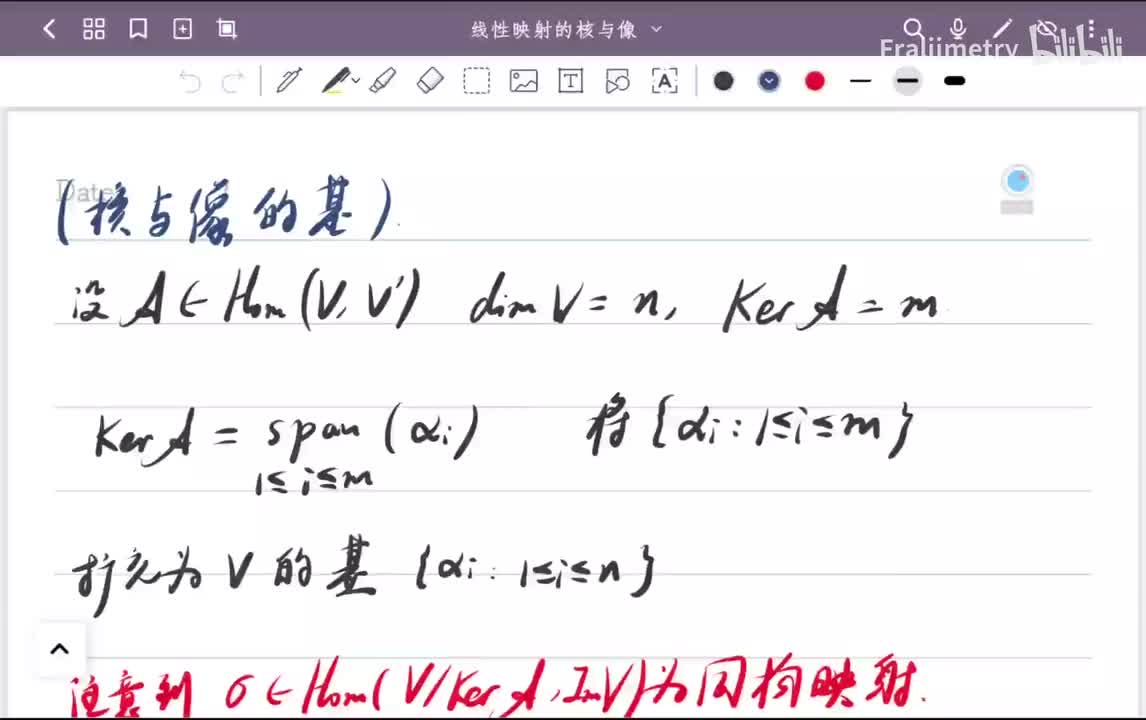 线性映射的核与像
Fraljimetry bilibili
Date
(核与像的基).
设 A ∈ Hom(V, V') dim V = n, Ker A = m
Ker A = span (αi) 将 {αi : 1≤i≤m}
1≤i≤m
扩充为 V 的基 {αi : 1≤i≤n}
注意到 σ ∈ Hom(V/Ker A, Im V)为同构映射.